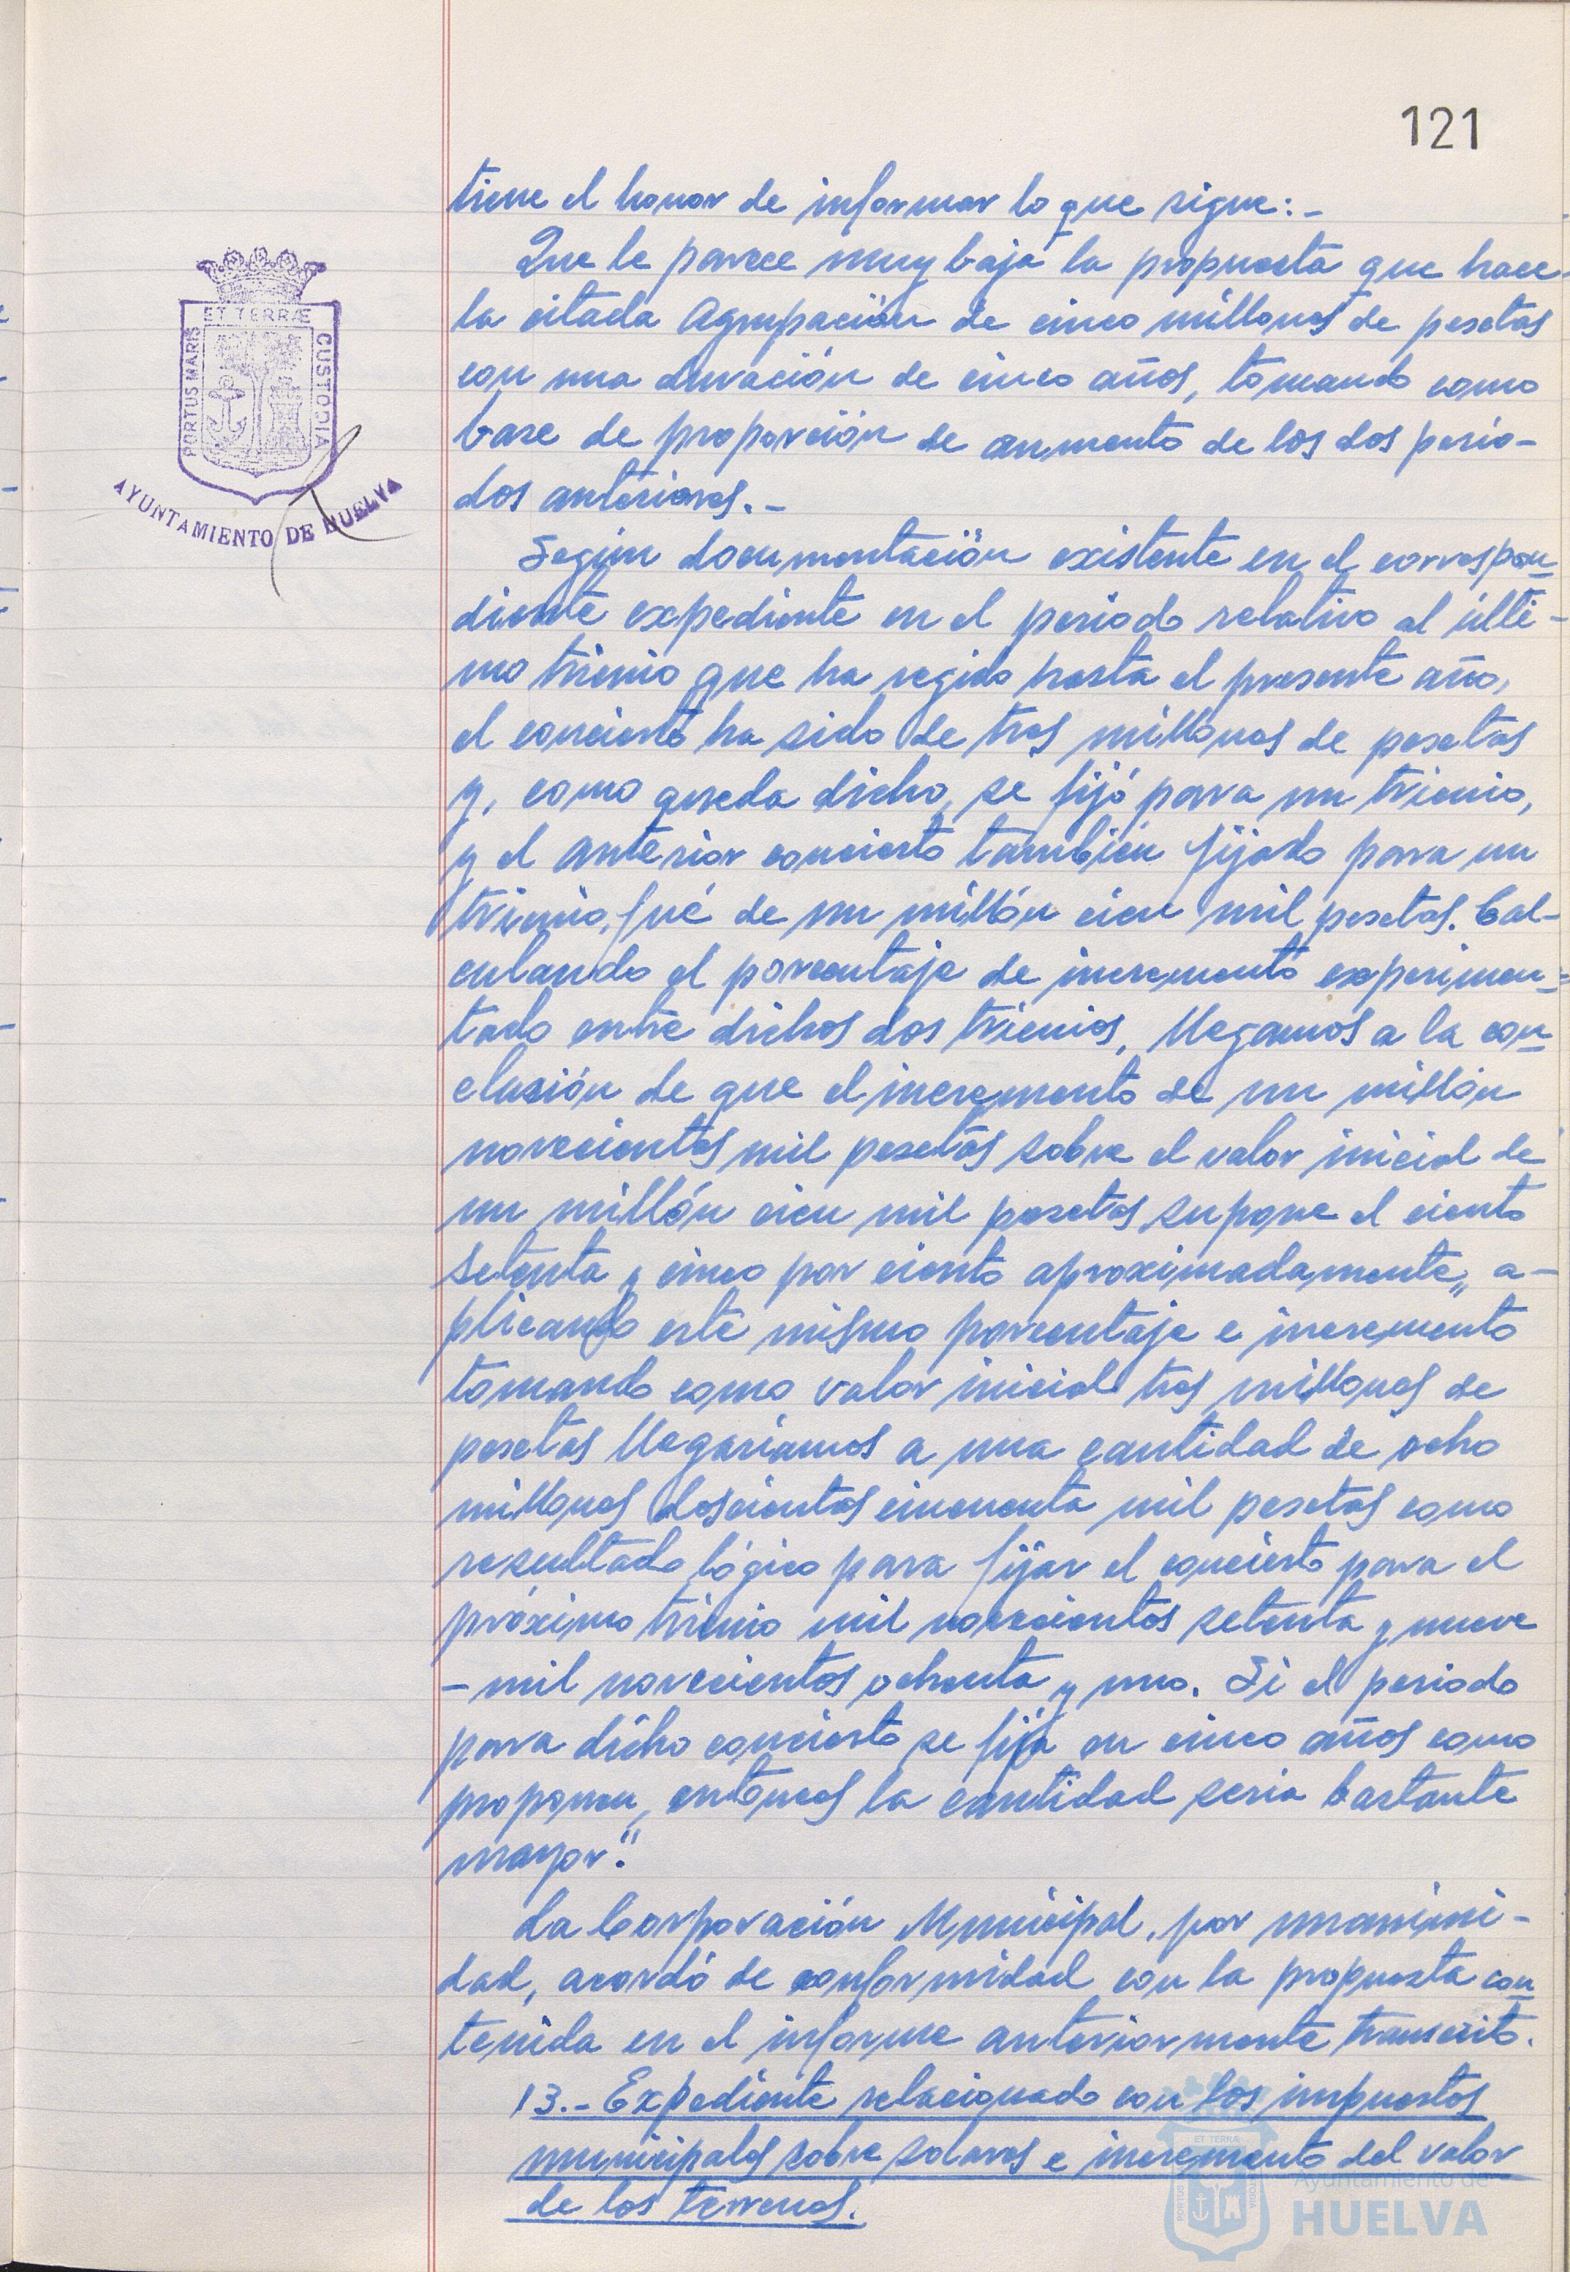 121
tiene el honor de informar lo que sigue:-
Que le parece muy baja la propuesta que hace
la citada Agrupación de cinco millones de pesetas
con una duración de cinco años, tomando como
base de proporción de aumento de los dos perio-
dos anteriores.-
Según documentación existente en el correspon-
diente expediente en el periodo relativo al últi-
mo trienio que ha regido hasta el presente año,
el concierto ha sido de tres millones de pesetas
y, como queda dicho, se fijó para un trienio,
y el anterior concierto también fijado para un
trienio, fué de un millón cien mil pesetas. Cal-
culando el porcentaje de incremento experimen-
tado entre dichos dos trienios, llegamos a la con-
clusión de que el incremento de un millón
novecientas mil pesetas sobre el valor inicial de
un millón cien mil pesetas supone el ciento
setenta y cinco por ciento aproximadamente, a-
plicando este mismo porcentaje e incremento
tomando como valor inicial tres millones de
pesetas llegaríamos a una cantidad de ocho
millones doscientas cincuenta mil pesetas como
resultado lógico para fijar el concierto para el
próximo trienio mil novecientos setenta y nueve
- mil novecientos ochenta y uno. Si el periodo
para dicho concierto se fija en cinco años como
proponen, entonces la cantidad seria bastante
mayor".
La Corporación Municipal, por unanimi-
dad, acordó de conformidad con la propuesta con
tenida en el informe anteriormente transcrito.
13.- Expediente relacionado con los impuestos
municipales sobre solares e incremento del valor
de los terrenos.
PORTUS MARIS ET TERRÆ CUSTODIA
AYUNTAMIENTO DE HUELVA
Ayuntamiento de
HUELVA